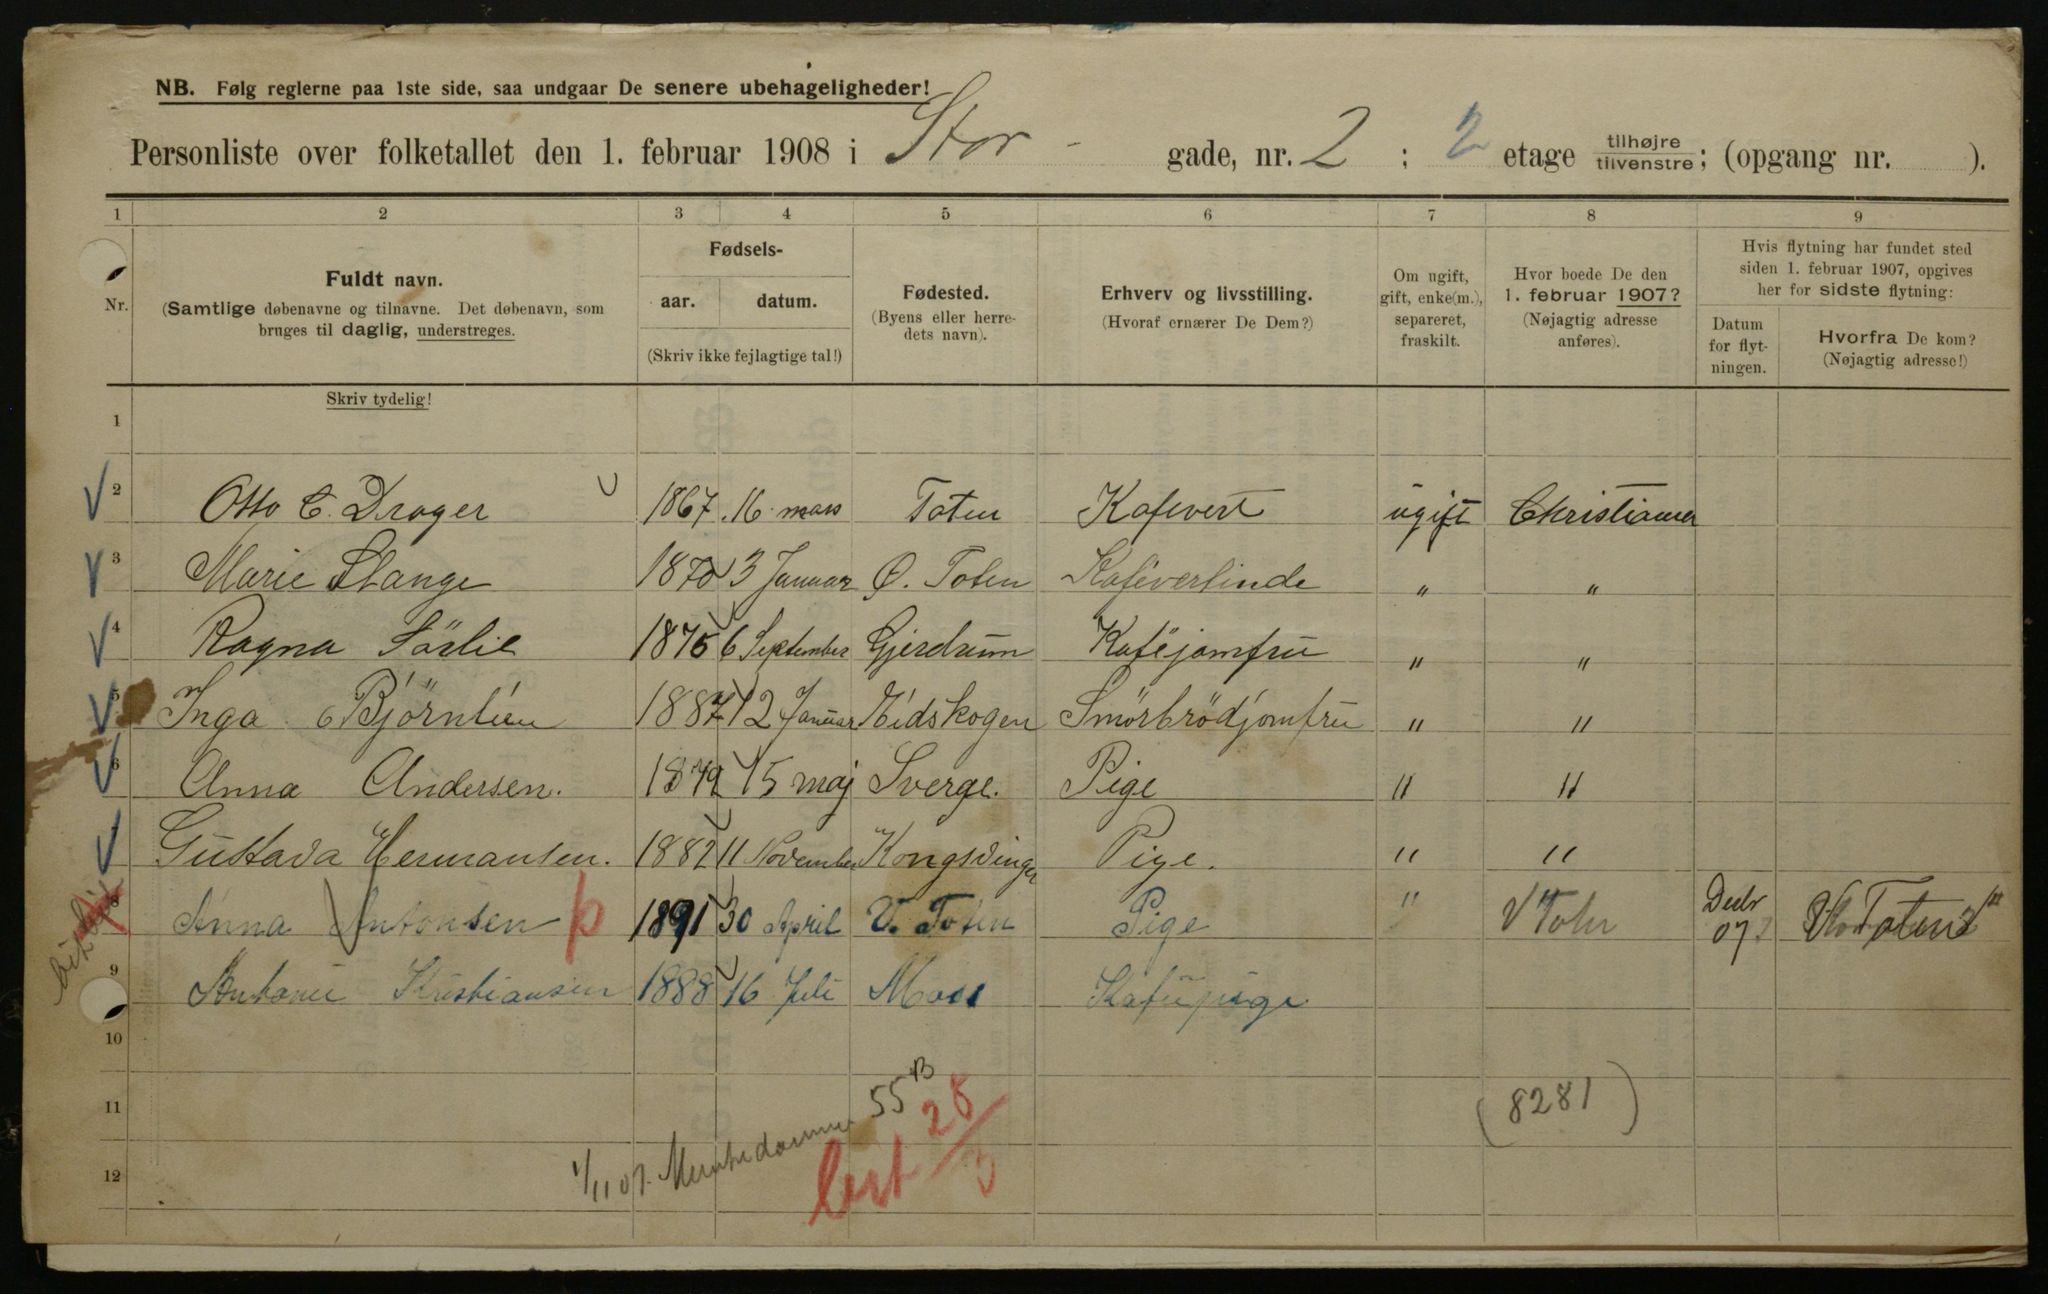 NB. Følg reglerne paa 1ste side, saa undgaar De senere ubehageligheder!
Personliste over folketallet den 1. februar 1908 i Stor - gade, nr. 2 ; 2 etage tilhøjre tilvenstre ; (opgang nr. ).
1 2 3 4 5 6 7 8 9
Nr.
Fuldt navn.
(Samtlige døbenavne og tilnavne. Det døbenavn, som
bruges til daglig, understreges.
Skriv tydelig!
Fødsels-
aar. datum.
(Skriv ikke fejlagtige tal!)
Fødested.
(Byens eller herre-
dets navn).
Erhverv og livsstilling.
(Hvoraf ernærer De Dem?)
Om ugift,
gift, enke(m.),
separeret,
fraskilt.
Hvor boede De den
1. februar 1907?
(Nøjagtig adresse
anføres).
Hvis flytning har fundet sted
siden 1. februar 1907, opgives
her for sidste flytning:
Datum
for flyt-
ningen.
Hvorfra De kom?
(Nøjagtig adresse!)
1
2 Otto C. Drager 1867 16 mars Toten Kafevert ugift Christiania
3 Marie Stange 1870 3 Januar Ø. Toten Kafévertinde " "
4 Ragna Sörlie 1875 6 September Gjerdrum Kaféjomfru " "
5 Inga Björnlien 1887 12 Januar Eidskogen Smörbrödjomfru " "
6 Anna Andersen. 1879 15 maj Sverge. Pige " "
7 Gustava Hermansen. 1882 11 November Kongsvinger Pige. " "
8 Anna Antonsen 1891 30 April V. Toten Pige " V Totn Decbr 07 Toten
9 Antonie Kristiansen 1888 16 Juli Moss Kafépige
10
11
12
(8281)
1/11 07. Munkedamsv 55 B
28/3